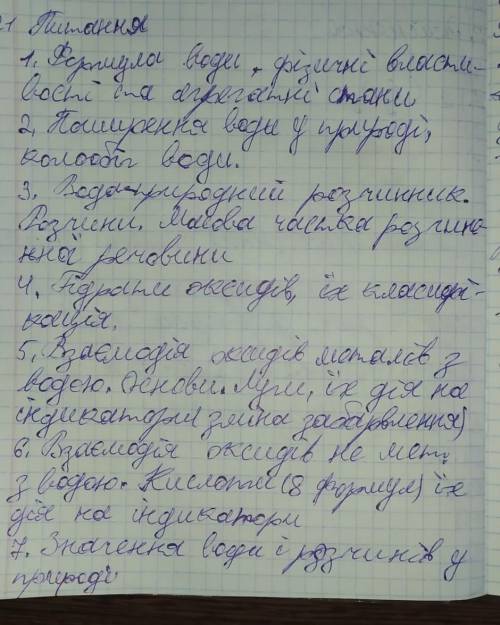 1 Питання
1. Формула води, фізичні власти-
вості та агрегатні стани
2, Поширення води у природі,
колообіг води.
3. Вода-природний розчинник.
Розчини. Масова частка розчине-
нної речовини
4. Гідрати оксидів, їх класифі-
кація.
5. Взаємодія оксидів металів з
водою. Основи. Луги, їх дія на
індикатори (зміна забарвлення)
6. Взаємодія оксидів не мет.
з водою. Кислоти (8 формул) їх
дія на індикатори
7. Значення води і розчинів у
природі